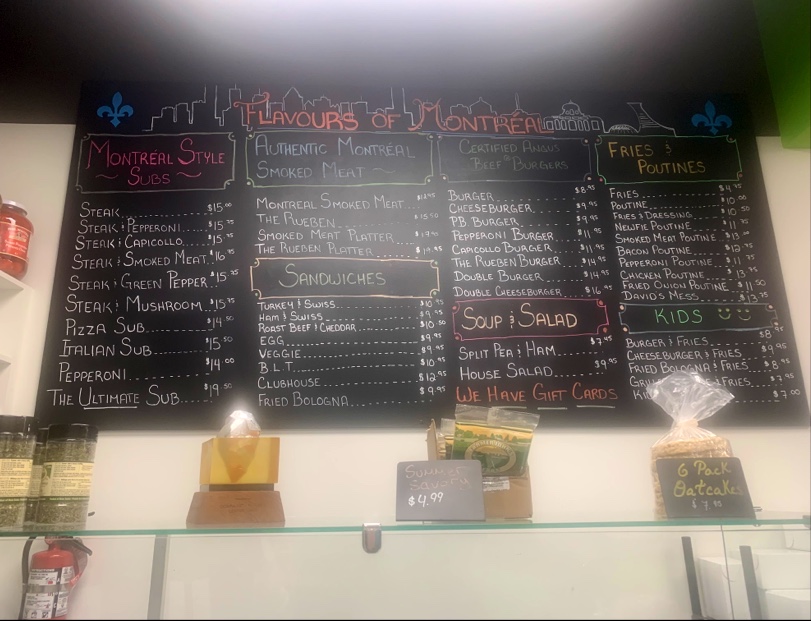 Flavours of Montréal
Montréal Style
Subs
Steak $15.00
Steak & Pepperoni $15.75
Steak & Capicollo $15.75
Steak & Smoked Meat $16.75
Steak & Green Pepper $15.75
Steak & Mushroom $15.75
Pizza Sub $14.50
Italian Sub $15.50
Pepperoni $14.00
The Ultimate Sub $19.50
Authentic Montréal
Smoked Meat
Montreal Smoked Meat
The Rueben
Smoked Meat Platter
The Rueben Platter
Sandwiches
Turkey & Swiss $10.95
Ham & Swiss $9.95
Roast Beef & Cheddar $10.50
Egg $9.95
Veggie $9.95
B.L.T. $10.95
Clubhouse $12.95
Fried Bologna $9.95
Certified Angus
Beef Burgers
Burger $8.95
Cheeseburger $9.95
PB Burger $9.95
Pepperoni Burger $11.95
Capicollo Burger $11.95
The Rueben Burger $14.95
Double Burger $14.95
Double Cheeseburger $16.95
Soup & Salad
Split Pea & Ham $7.95
House Salad $9.95
We Have Gift Cards
Fries &
Poutines
Fries
Poutine $10.00
Fries & Dressing $10.50
Newfie Poutine
Smoked Meat Poutine
Bacon Poutine
Pepperoni Poutine
Chicken Poutine
Fried Onion Poutine $11.50
David's Mess $13.75
Kids
Burger & Fries $8.95
Cheeseburger & Fries $9.95
Fried Bologna & Fries $8.95
& Fries $7.95
$7.00
Summer
Savory
$4.99
6 Pack
Oatcakes
$7.95